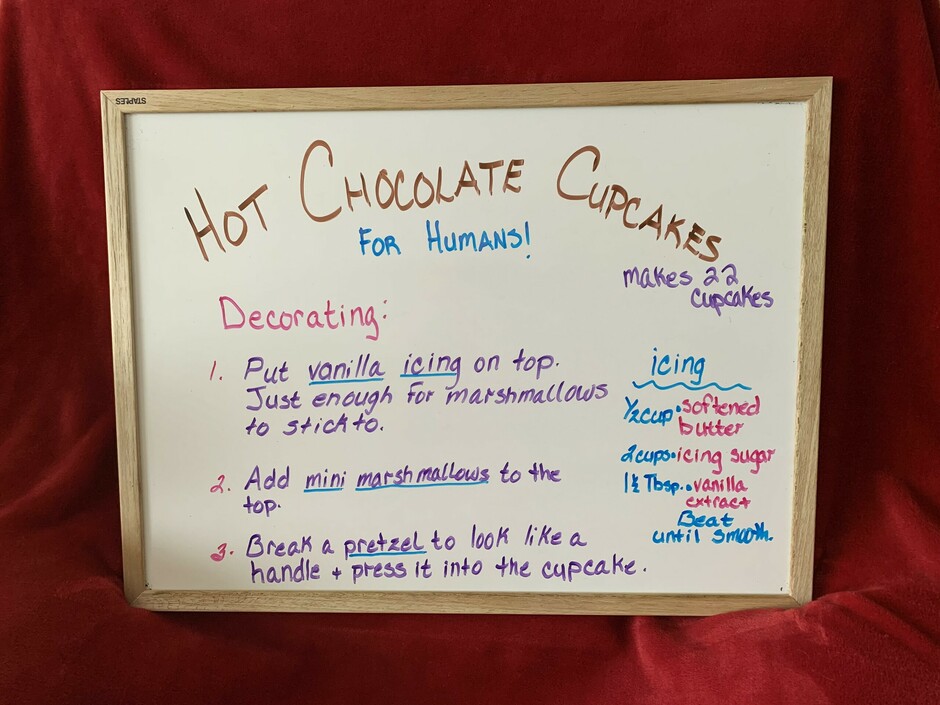 STAPLES
HOT CHOCOLATE CUPCAKES
FOR HUMANS!
makes 22
cupcakes
Decorating:
1. Put vanilla icing on top.
Just enough for marshmallows
to stick to.
2. Add mini marshmallows to the
top.
3. Break a pretzel to look like a
handle + press it into the cupcake.
icing
1/2 cup • softened
butter
2 cups • icing sugar
1 1/2 Tbsp. • vanilla
extract
Beat
until smooth.